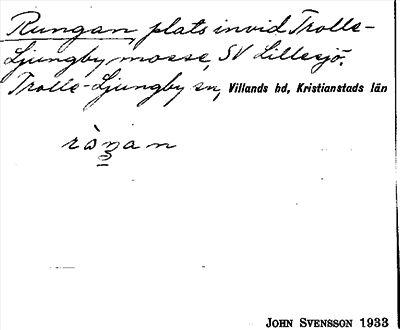 Rungan, plats invid Trolle-
Ljungby mosse, SV Lillesjö.
Trolle-Ljungby sn, Villands hd, Kristianstads län
John Svensson 1933